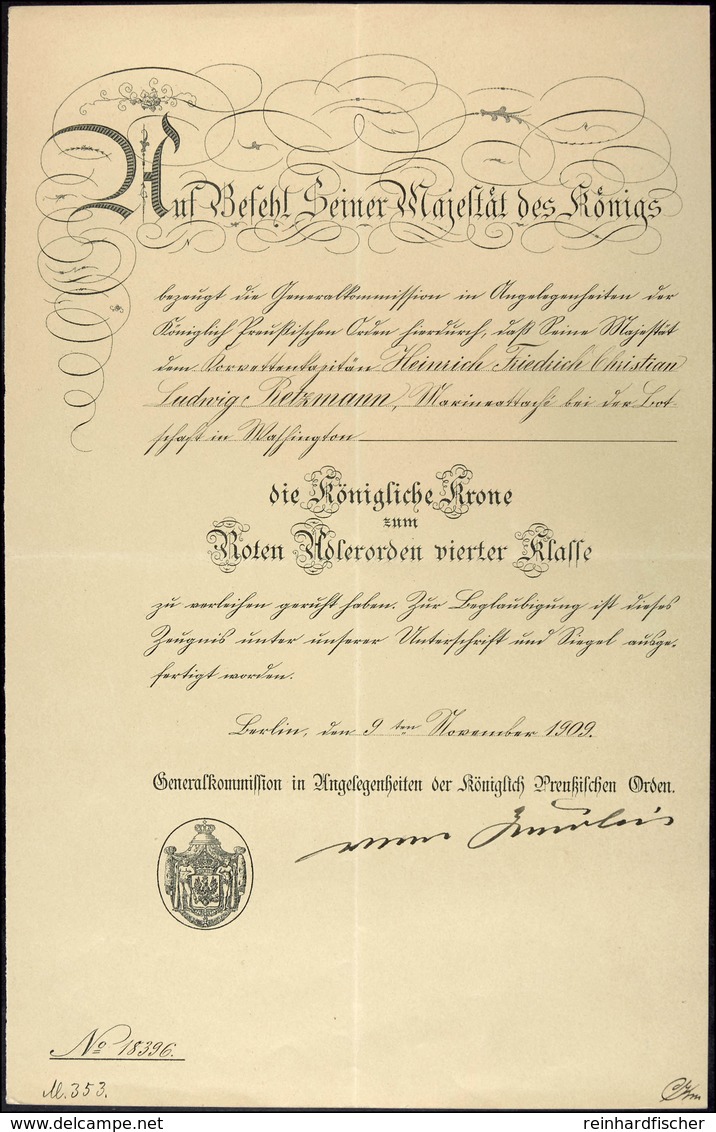 Auf Befehl Seiner Majestät des Königs
bezeugt die Generalkommission in Angelegenheiten der
Königlich Preußischen Orden hierdurch, daß Seine Majestät
dem Korvettenkapitän Heinrich Friedrich Christian
Ludwig Retzmann, Marineattaché bei der Bot-
schaft in Washington
die Königliche Krone
zum
Roten Adlerorden vierter Klasse
zu verleihen geruht haben. Zur Beglaubigung ist dieses
Zeugnis unter unserer Unterschrift und Siegel ausge-
fertigt worden.
Berlin, den 9ten November 1909.
Generalkommission in Angelegenheiten der Königlich Preußischen Orden.
No 18396.
M. 353.
reinhardfischer